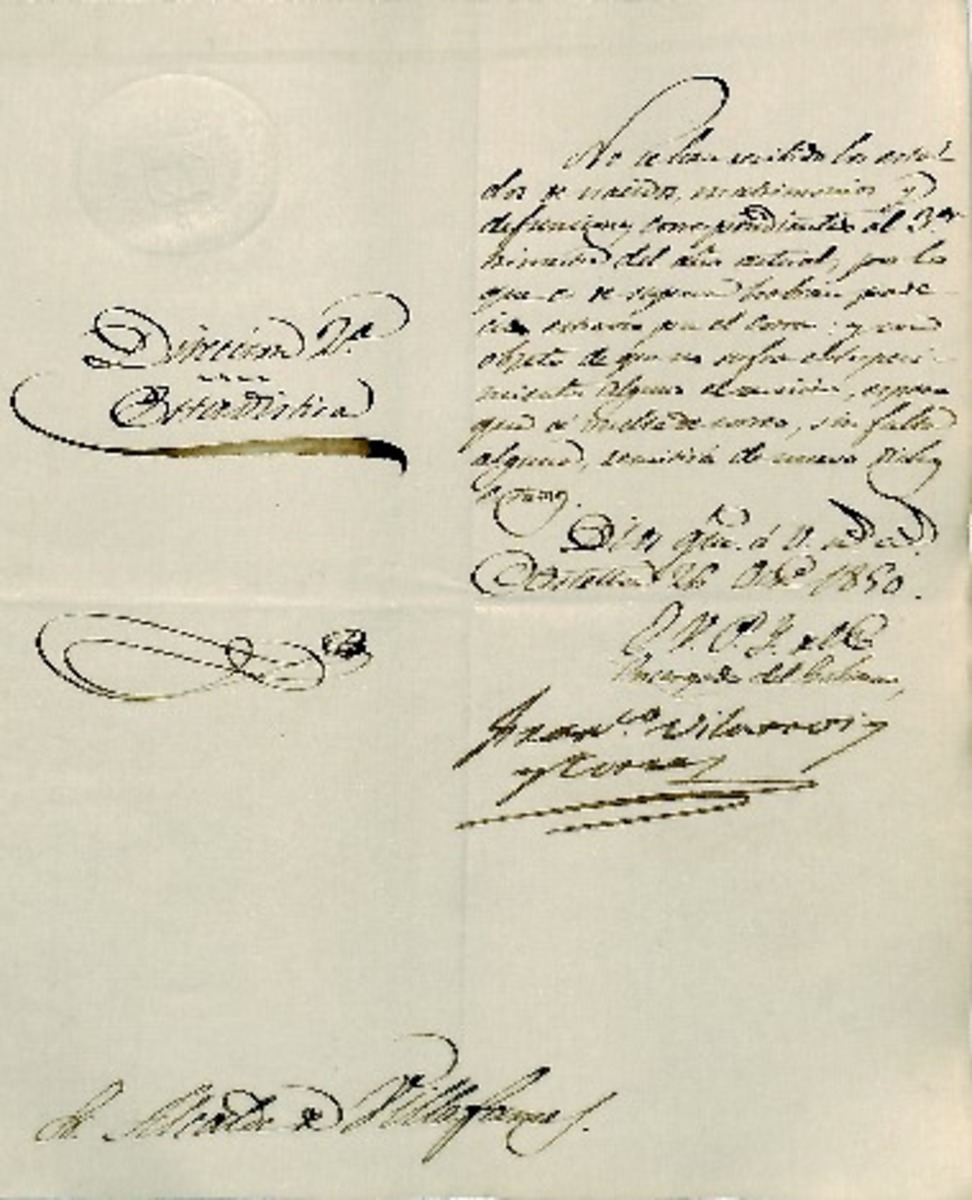 Direccion 2.ª
Estadistica
No se han recibido los esta-
dos de nacidos, matrimonios y
defunciones correspondientes al 3.er
trimestre del año actual, por lo
que es de suponer habrán pade-
cido estravio por el correo; y con
objeto de que no sufra entorpeci-
miento alguno el servicio, espero
que á vuelta de correo, sin falta
alguna, remitirá de nuevo dichos
estados.
Dios gue. á V. m.s a.s
Castellon 26 1850.
Encargado del Gobierno,
Fran.co Vilarroig
Sr. Alcalde de Villafames.